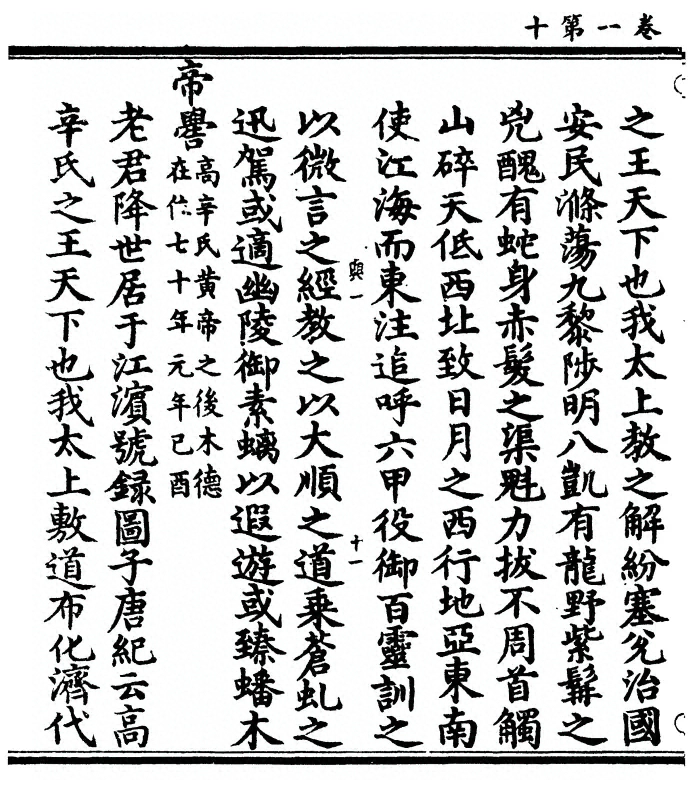 卷一第十
之王天下也我太上教之解紛塞兌治國
安民滌蕩九黎陟明八凱有龍野紫髯之
兇醜有蛇身赤髮之渠魁力拔不周首觸
山碎天低西北致日月之西行地亞東南
使江海而東注追呼六甲役御百靈訓之
與一
十一
以微言之經教之以大順之道乘蒼虬之
迅駕或適幽陵御素螭以遐遊或臻蟠木
帝嚳
高辛氏黄帝之後木德
在位七十年元年己酉
老君降世居于江濱號録圖子唐紀云高
辛氏之王天下也我太上敷道布化濟代